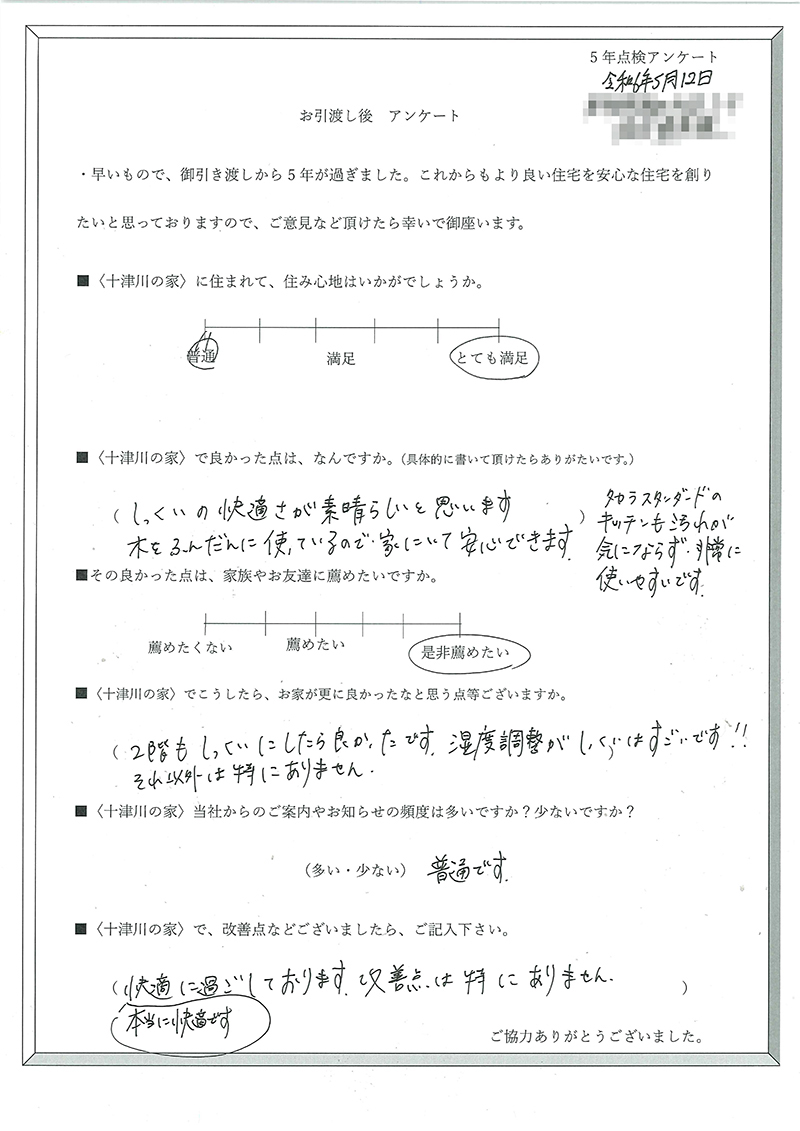 5年点検アンケート
令和6年5月12日
お引渡し後　アンケート
・早いもので、御引き渡しから5年が過ぎました。これからもより良い住宅を安心な住宅を創り
たいと思っておりますので、ご意見など頂けたら幸いで御座います。
■〈十津川の家〉に住まれて、住み心地はいかがでしょうか。
普通　満足　とても満足
■〈十津川の家〉で良かった点は、なんですか。（具体的に書いて頂けたらありがたいです。）
（しっくいの快適さが素晴らしいと思います
木をふんだんに使っているので家にいて安心できます。）
タカラスタンダードの
キッチンも汚れが
気にならず非常に
使いやすいです。
■その良かった点は、家族やお友達に薦めたいですか。
薦めたくない　薦めたい　是非薦めたい
■〈十津川の家〉でこうしたら、お家が更に良かったなと思う点等ございますか。
（2階もしっくいにしたら良かったです。湿度調整がしっくいはすごいです!!
それ以外は特にありません。
■〈十津川の家〉当社からのご案内やお知らせの頻度は多いですか？少ないですか？
（多い・少ない）　普通です。
■〈十津川の家〉で、改善点などございましたら、ご記入下さい。
（快適に過ごしております。改善点は特にありません。）
本当に快適です
ご協力ありがとうございました。